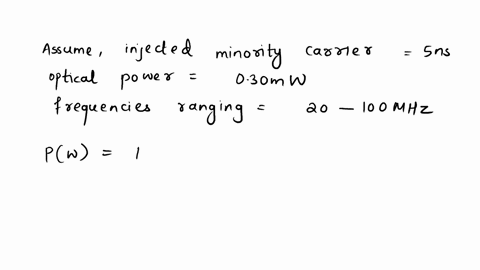 Assume, injected minority carrier = 5ns
optical power = 0.30mW
frequencies ranging = 20 - 100 MHz
P(w) = 1